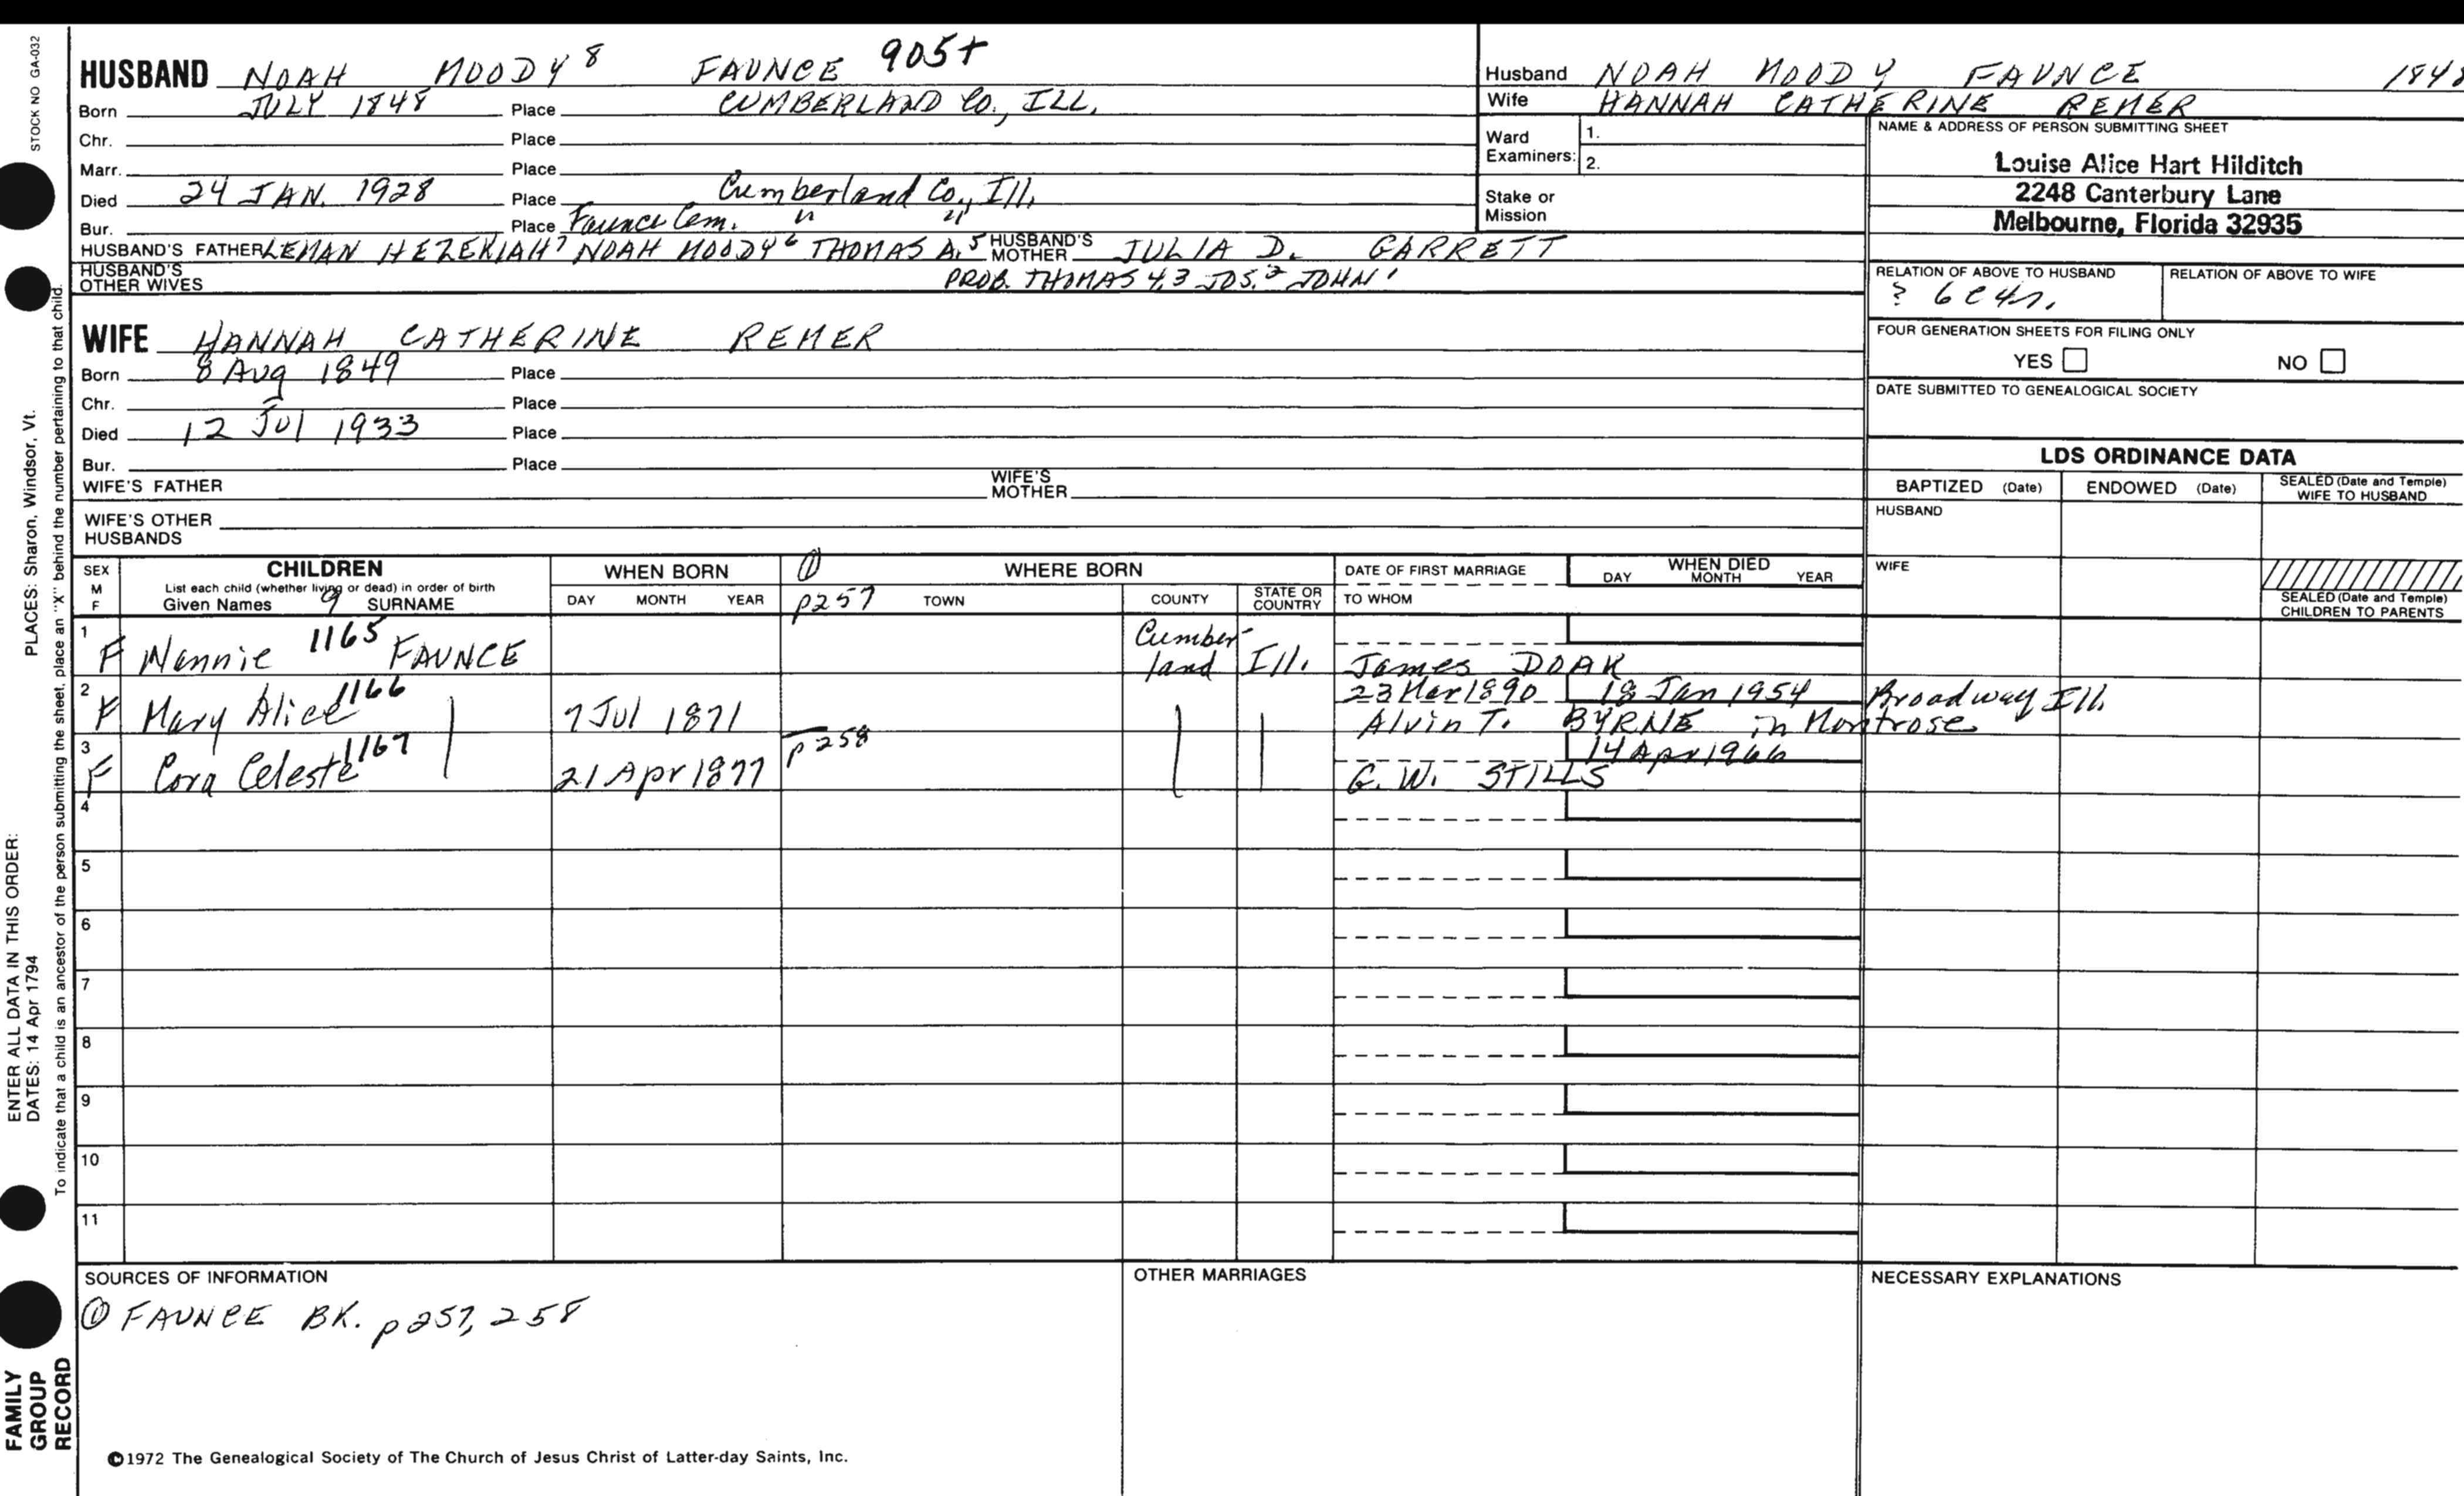 STOCK NO GA-032
PLACES: Sharon, Windsor, Vt.
ENTER ALL DATA IN THIS ORDER:
DATES: 14 Apr 1794
To indicate that a child is an ancestor of the person submitting the sheet, place an "X" behind the number pertaining to that child.
FAMILY
GROUP
RECORD
HUSBAND NOAH MOODY 8 FAUNCE 905+
Born JULY 1848 Place CUMBERLAND CO., ILL.
Chr. Place
Marr. Place
Died 24 JAN. 1928 Place Cumberland Co., Ill.
Bur. Place Faunce Cem. " "
HUSBAND'S FATHER LEMAN HEZEKIAH 7 NOAH MOODY 6 THOMAS A. 5 HUSBAND'S MOTHER JULIA D. GARRETT
HUSBAND'S OTHER WIVES PROB. THOMAS 4,3 JOS. 2 JOHN 1
WIFE HANNAH CATHERINE REMER
Born 8 Aug 1849 Place
Chr. Place
Died 12 Jul 1933 Place
Bur. Place
WIFE'S FATHER WIFE'S MOTHER
WIFE'S OTHER HUSBANDS
Husband NOAH MOODY FAUNCE 1848
Wife HANNAH CATHERINE REMER
Ward Examiners: 1.
2.
Stake or Mission
NAME & ADDRESS OF PERSON SUBMITTING SHEET
Louise Alice Hart Hilditch
2248 Canterbury Lane
Melbourne, Florida 32935
RELATION OF ABOVE TO HUSBAND RELATION OF ABOVE TO WIFE
? 6c4r.
FOUR GENERATION SHEETS FOR FILING ONLY
YES NO
DATE SUBMITTED TO GENEALOGICAL SOCIETY
LDS ORDINANCE DATA
BAPTIZED (Date) ENDOWED (Date) SEALED (Date and Temple) WIFE TO HUSBAND
HUSBAND
WIFE
SEALED (Date and Temple) CHILDREN TO PARENTS
SEX M F CHILDREN WHEN BORN ① WHERE BORN DATE OF FIRST MARRIAGE WHEN DIED
List each child (whether living or dead) in order of birth
Given Names 9 SURNAME DAY MONTH YEAR p257 TOWN COUNTY STATE OR COUNTRY TO WHOM DAY MONTH YEAR
1 F Nannie 1165 FAUNCE Cumberland Ill. James DOAK
2 F Mary Alice 1166 7 Jul 1871 23 Mar 1890 18 Jan 1954 Broadway Ill.
Alvin T. BYRNE in Montrose
3 F Cora Celeste 1167 21 Apr 1877 p258 14 Apr 1966
G. W. STILLS
4
5
6
7
8
9
10
11
SOURCES OF INFORMATION OTHER MARRIAGES NECESSARY EXPLANATIONS
① FAUNCE BK. p257, 258
©1972 The Genealogical Society of The Church of Jesus Christ of Latter-day Saints, Inc.